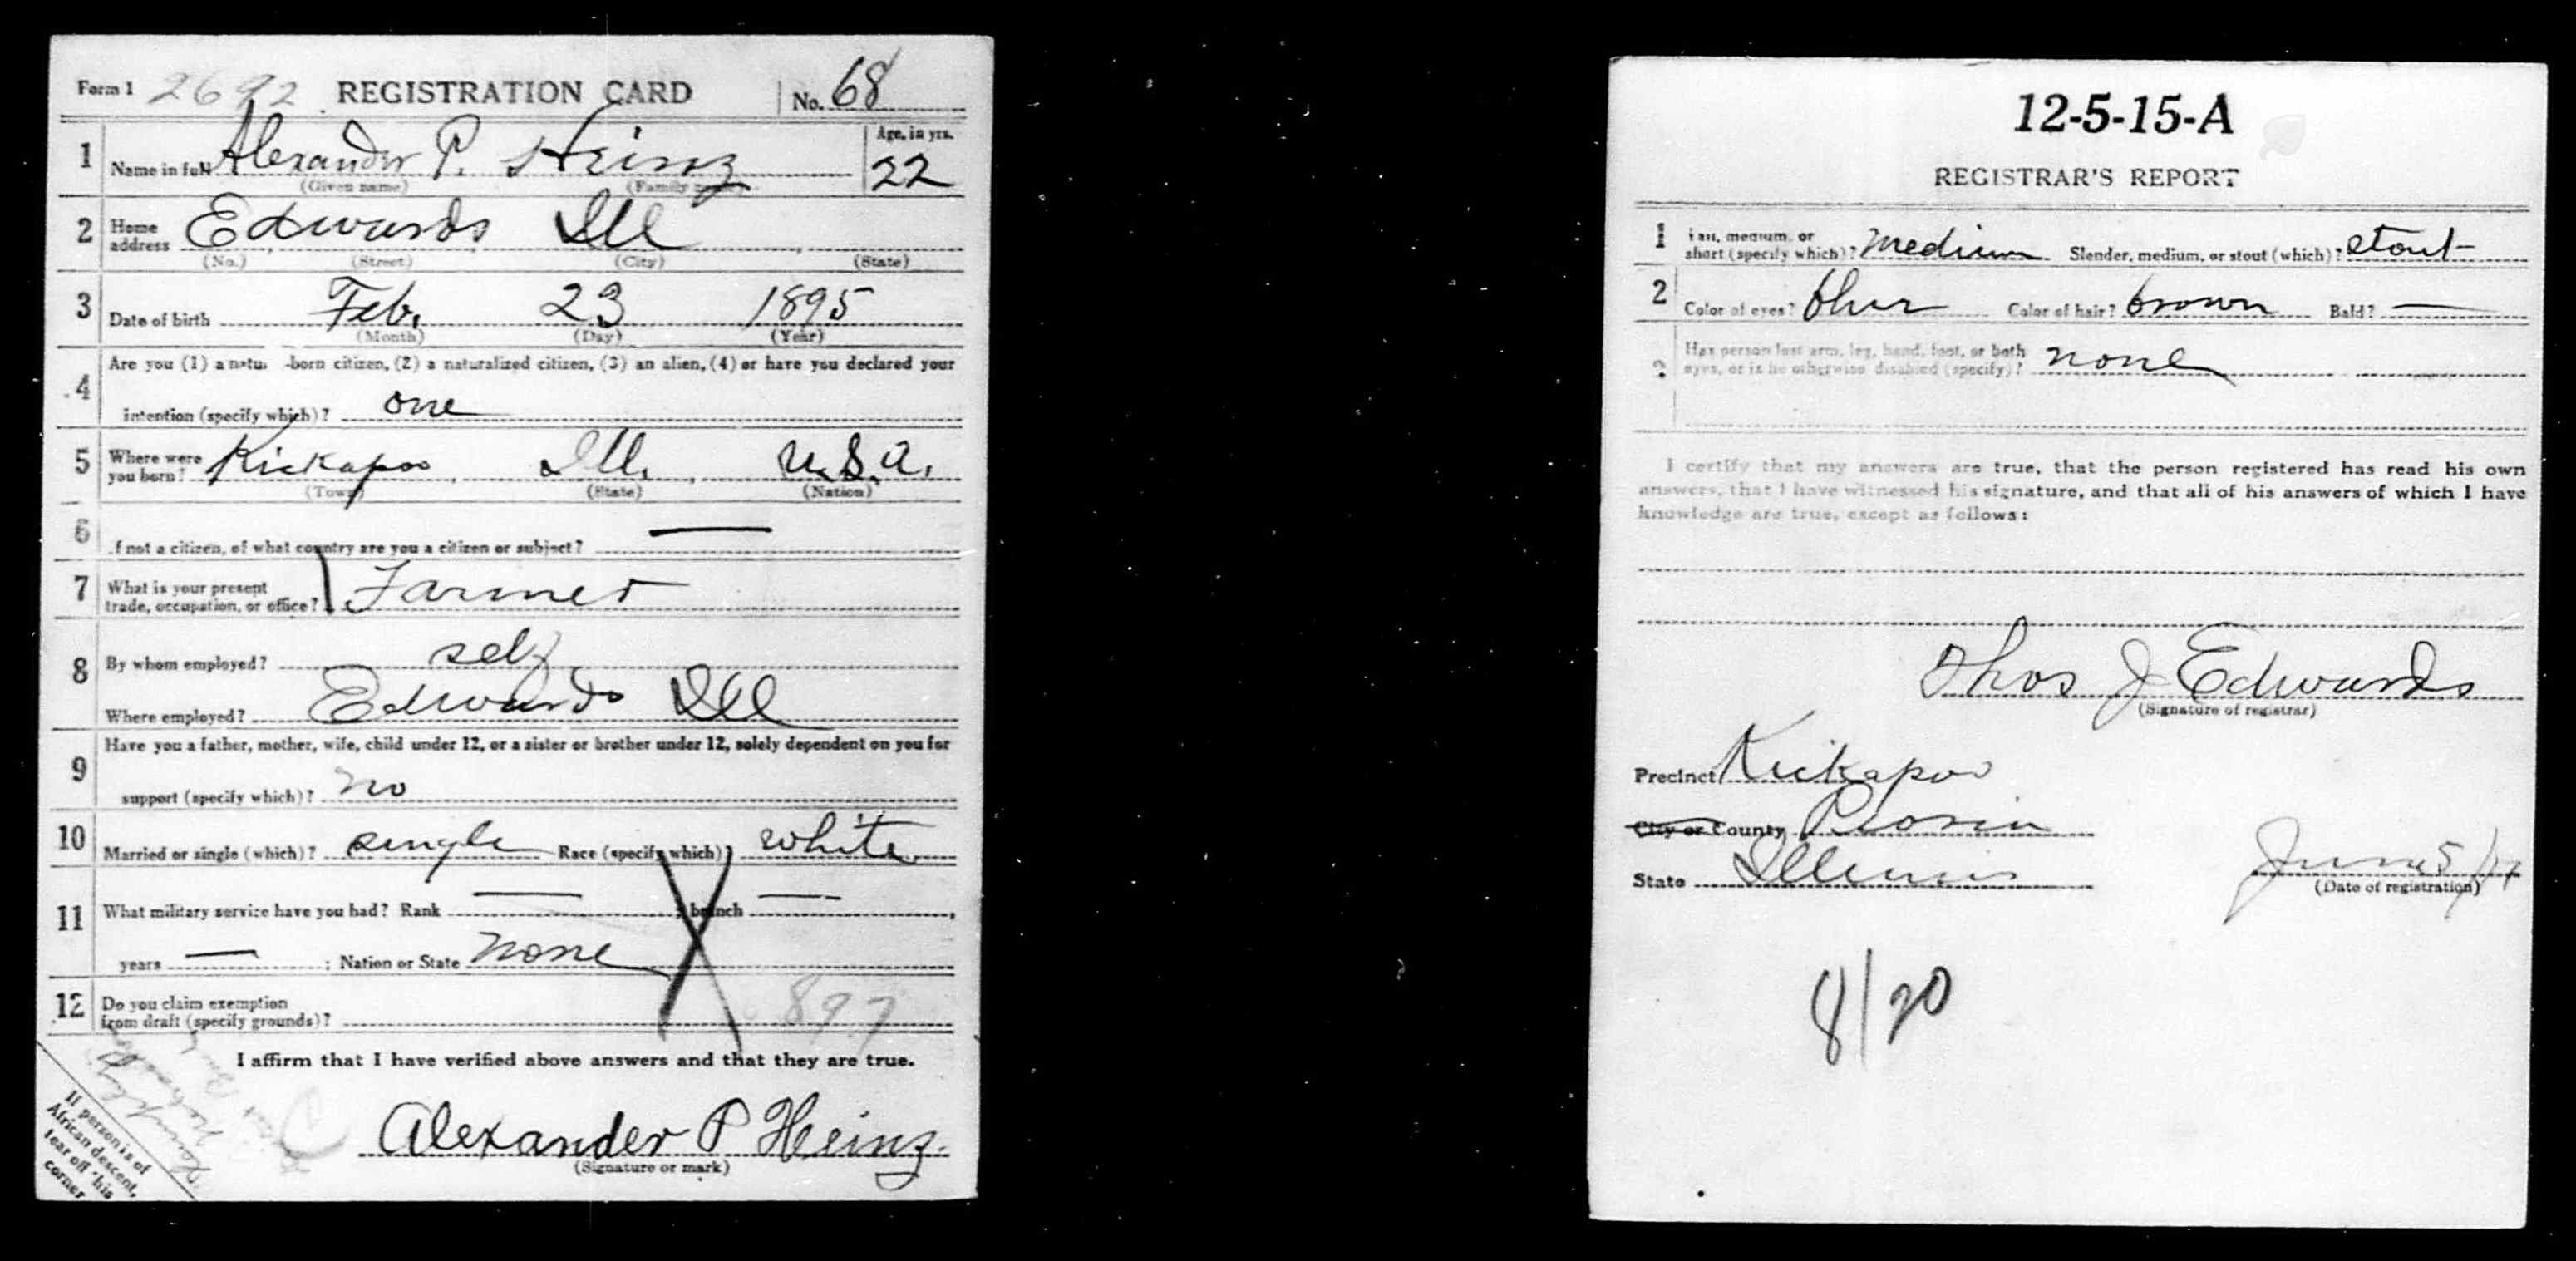 Form 1 2692 REGISTRATION CARD No. 68
1 Name in full Alexander P. Heinz Age, in yrs. 22
(Given name) (Family name)
2 Home address Edwards Ill
(No.) (Street) (City) (State)
3 Date of birth Feb. 23 1895
(Month) (Day) (Year)
Are you (1) a natu -born citizen, (2) a naturalized citizen, (3) an alien, (4) or have you declared your
4 intention (specify which)? one
5 Where were you born? Kickapoo, Ill., U.S.A.
(Town) (State) (Nation)
6 If not a citizen, of what country are you a citizen or subject? —
7 What is your present trade, occupation, or office? Farmer
8 By whom employed? self
Where employed? Edwards Ill
Have you a father, mother, wife, child under 12, or a sister or brother under 12, solely dependent on you for
9 support (specify which)? no
10 Married or single (which)? single Race (specify which)? white
11 What military service have you had? Rank — ; branch — ,
years — ; Nation or State none
12 Do you claim exemption from draft (specify grounds)? 897
I affirm that I have verified above answers and that they are true.
Alexander P Heinz.
(Signature or mark)
If person is of
African descent,
tear off this
corner
12-5-15-A
REGISTRAR'S REPORT
1 Tall, medium, or short (specify which)? medium Slender, medium, or stout (which)? stout
2 Color of eyes? blue Color of hair? brown Bald? —
3 Has person lost arm, leg, hand, foot, or both eyes, or is he otherwise disabled (specify)? none
I certify that my answers are true, that the person registered has read his own
answers, that I have witnessed his signature, and that all of his answers of which I have
knowledge are true, except as follows:
Thos J Edwards
(Signature of registrar)
Precinct Kickapoo
City or County Peoria
State Illinois
June 5/17
(Date of registration)
8/20